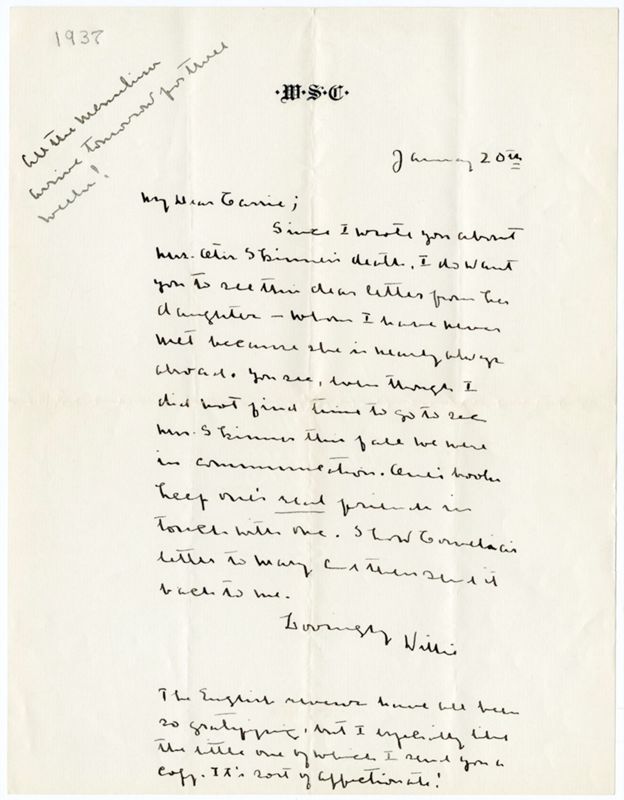 1937
All the Menuhins
arrive tomorrow for three
weeks!
·W·S·C·
January 20th
My Dear Carrie;
Since I wrote you about
Mrs. Otis Skinner's death, I do want
you to see this dear letter from her
daughter — whom I have never
met because she is nearly always
abroad. You see, even though I
did not find time to go to see
Mrs. Skinner this fall we were
in communication. One's books
keep one's real friends in
touch with one. Show Cornelia's
letter to Mary and then send it
back to me.
Lovingly
Willie
The English reviews have all been
so gratifying, but I especially like
the little one of which I send you a
copy. It's sort of affectionate!